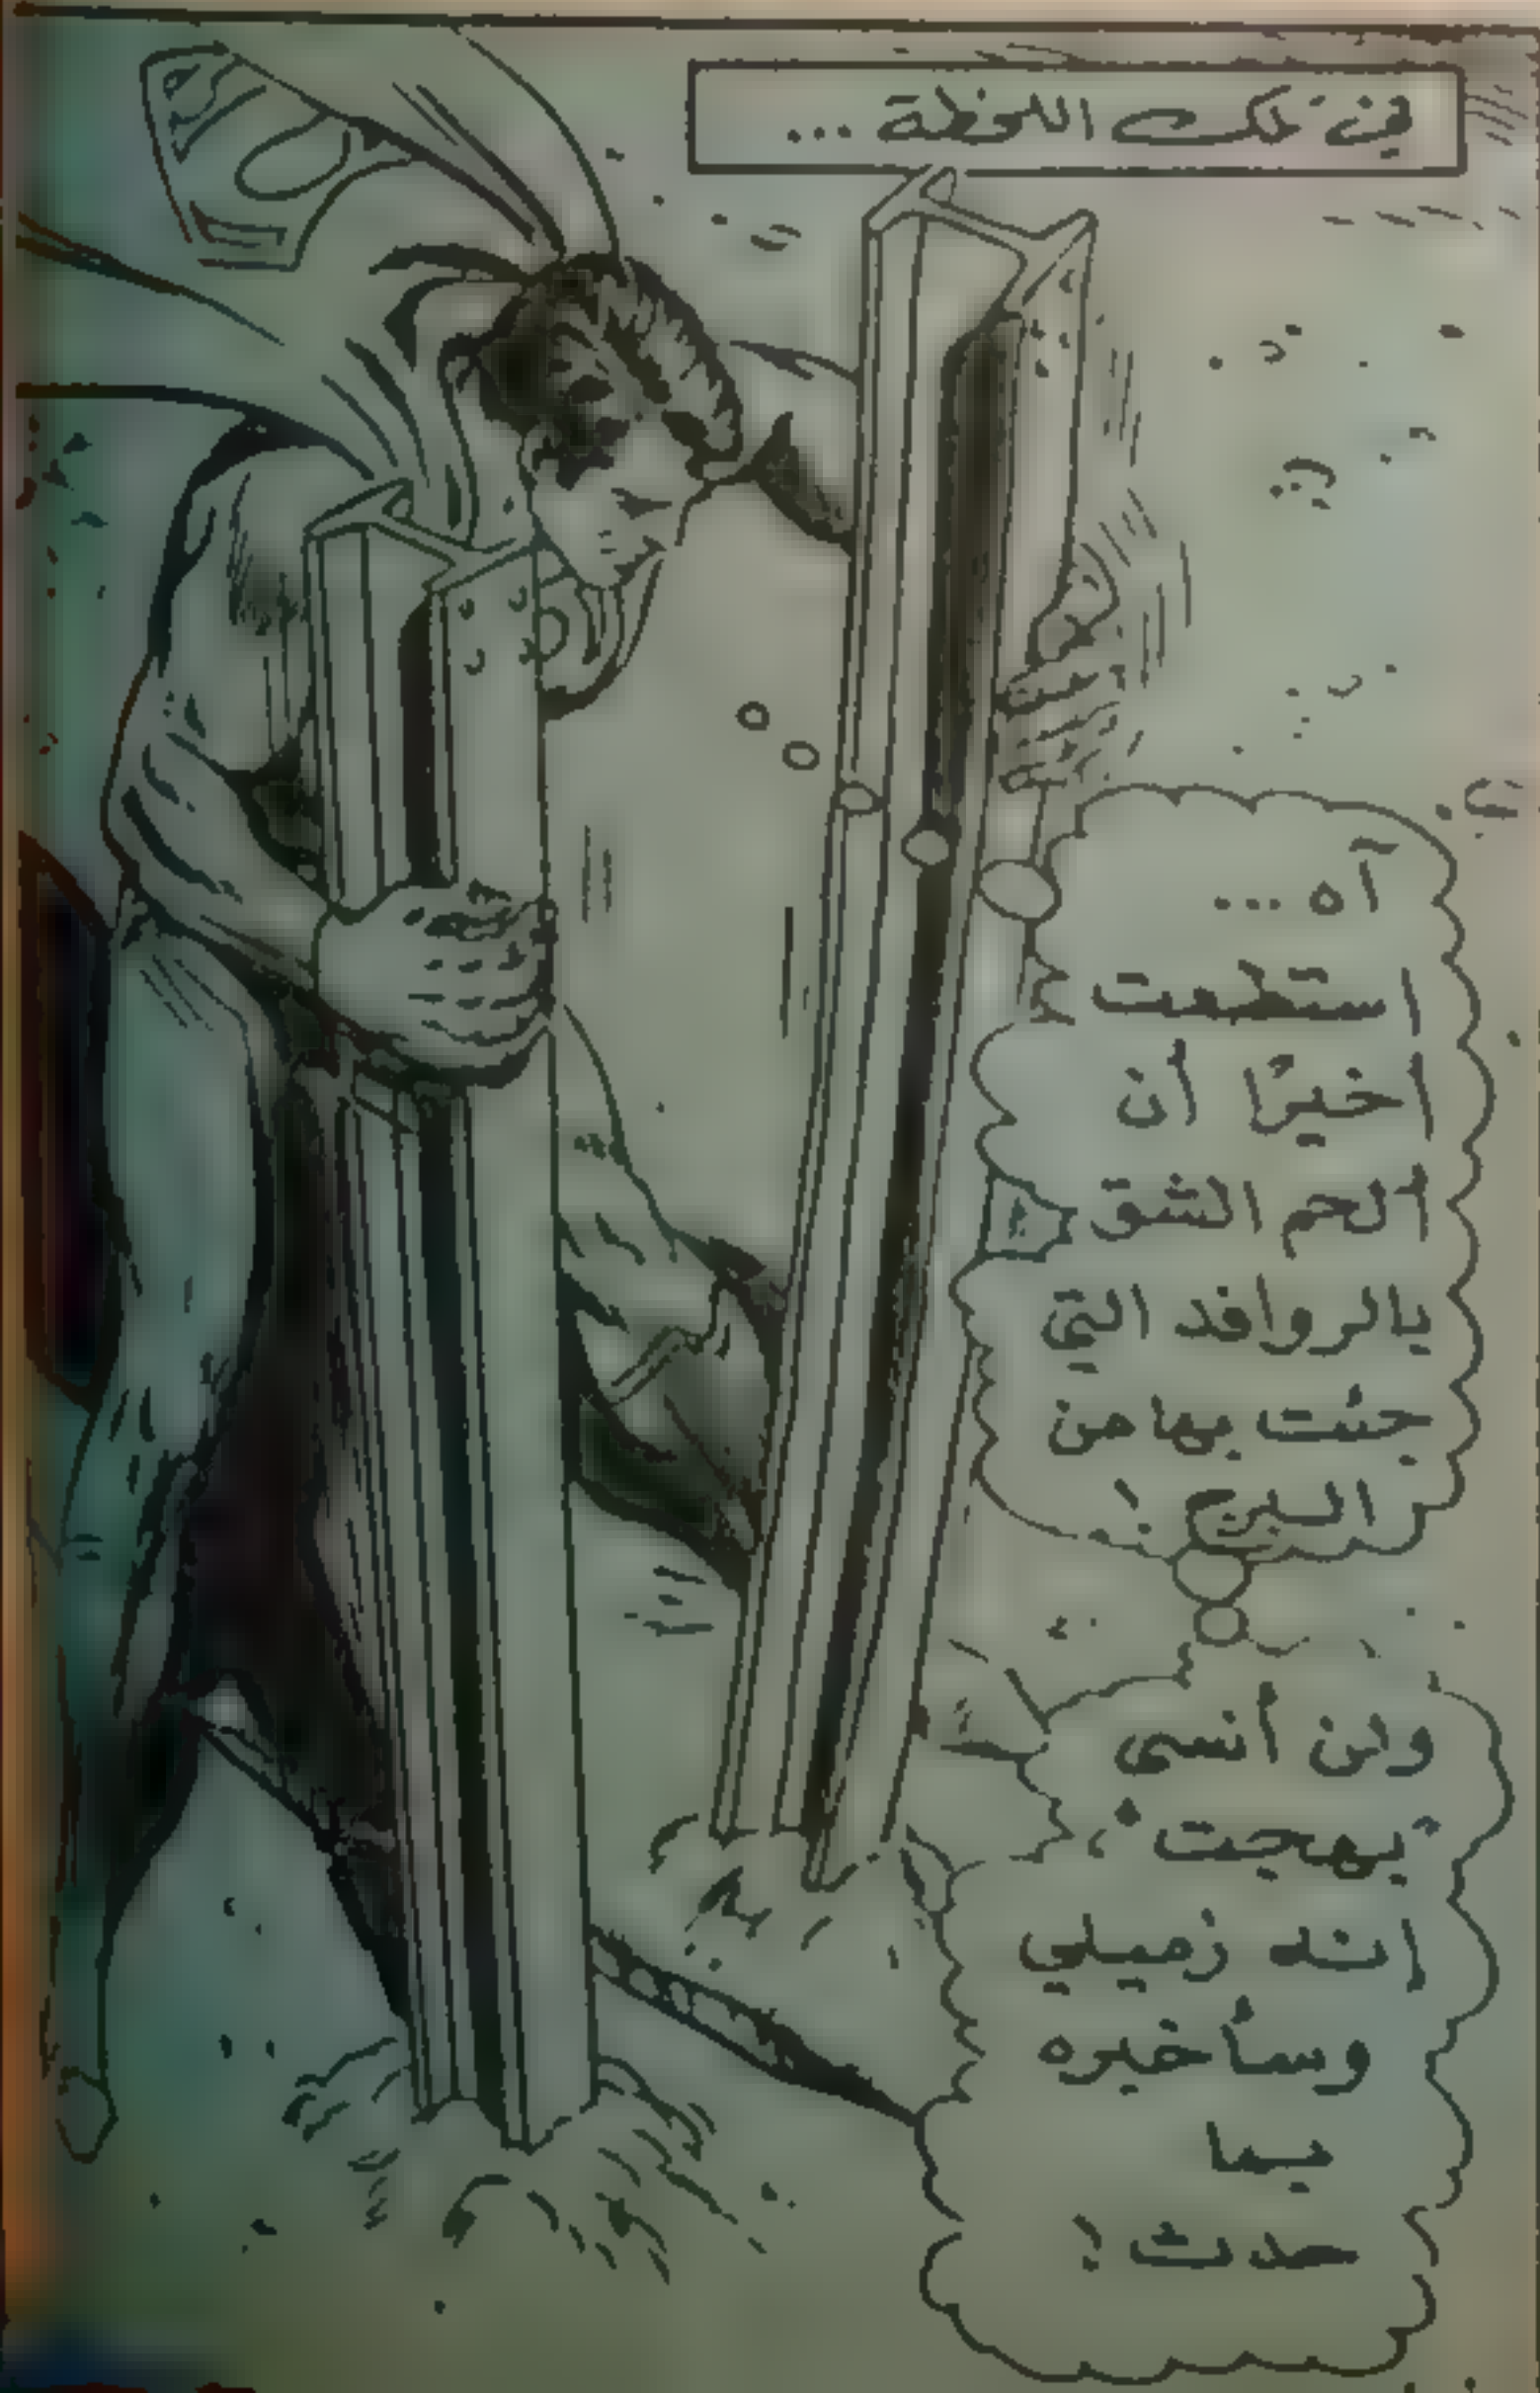 في تلك اللحظة ...
آه ...
استطعت
أخيرًا أن
ألحم الشق
بالروافد التي
جئت بها من
البرج !
ولن أنسى
"بهجت"،
إنه زميلي
وسأخبره
بما
حدث !